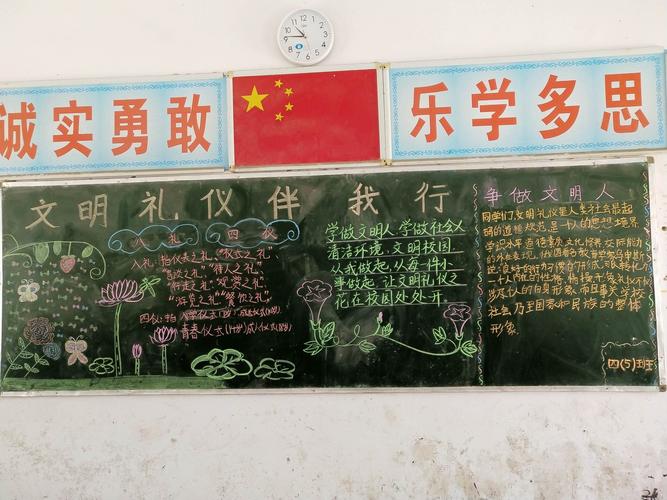 诚实勇敢
乐学多思
文明礼仪伴我行
八礼
四仪
八礼:指仪表之礼"仪式之礼"
"言谈之礼""待人之礼"
"行走之礼""观赏之礼"
"游览之礼""餐饮之礼"
四仪:指
青春仪式(14岁)成人仪式(18岁)
学做文明人 学做社会人
清洁环境,文明校园
从我做起,从每一件小
事做起,让文明礼仪之
花在校园处处开.
争做文明人
同学们,文明礼仪是人类社会最起
明的道德规范,是一个人的思想境界
社会乃至国家和民族的整体
形象.
四(5)班